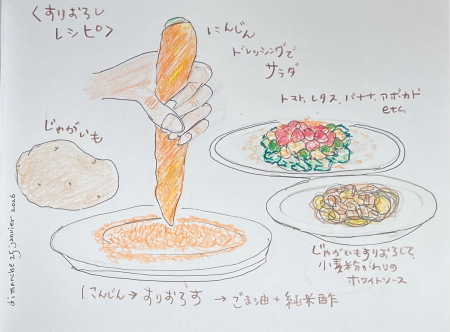 <すりおろし
レシピ>
にんじん
ドレッシングで
サラダ
トマト,レタス,バナナ,アボカド
etc.
じゃがいも
dimanche 25 janvier 2026
じゃがいもすりおろして、
小麦粉がわりの
ホワイトソース
にんじん→すりおろす → ごま油+純米酢